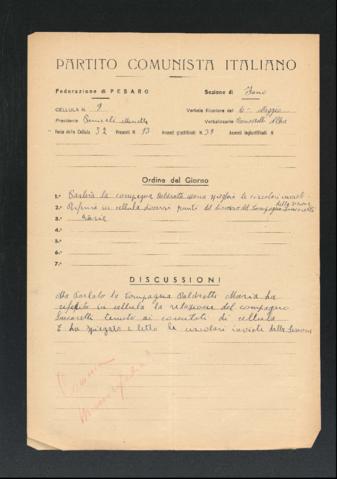 PARTITO COMUNISTA ITALIANO
Federazione di PESARO Sezione di Fano
CELLULA N. 9 Verbale Riunione del 6 Maggio
Presidente Verbalizzante Alba
Forza della Cellula 32 Presenti N. 13 Assenti giustificati N. Assenti ingiustificati N.
Ordine del Giorno
1.° Parlerà la compagna Baldrati come spiegare le circolari inviate
dalla Sezione
2.° Riferire in cellula diversi punti del discorso del Compagno
3.° varie
4.°
5.°
6.°
7.°
DISCUSSIONI
Ha Parlato la Compagna Baldretti Maria ha
riferito in cellula la relazione del compagno
tenuto ai comitati di cellula
E ha spiegato e letto le circolari inviate dalla Sezione